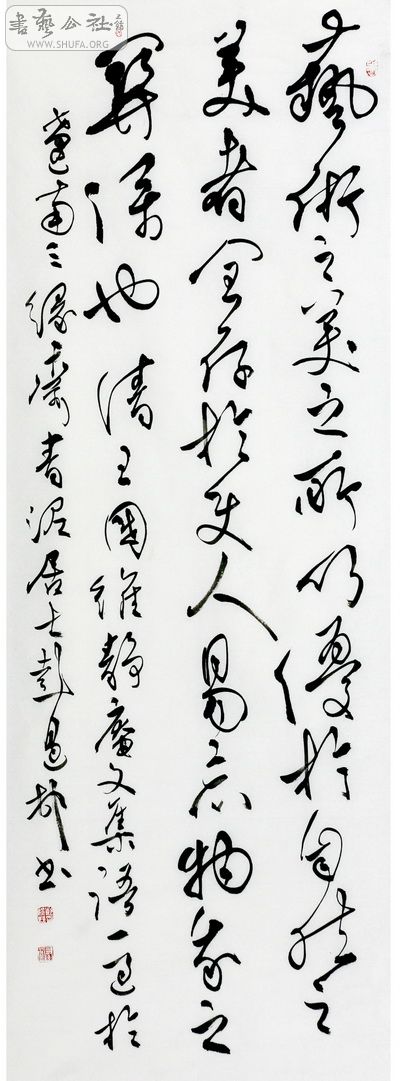 書藝公社
WWW.SHUFA.ORG
藝術之美之所以優於自然之
美者全存於使人易忘物我之
關係也 清王國維靜庵文集語一於
南三緣齋青泥居士彭書